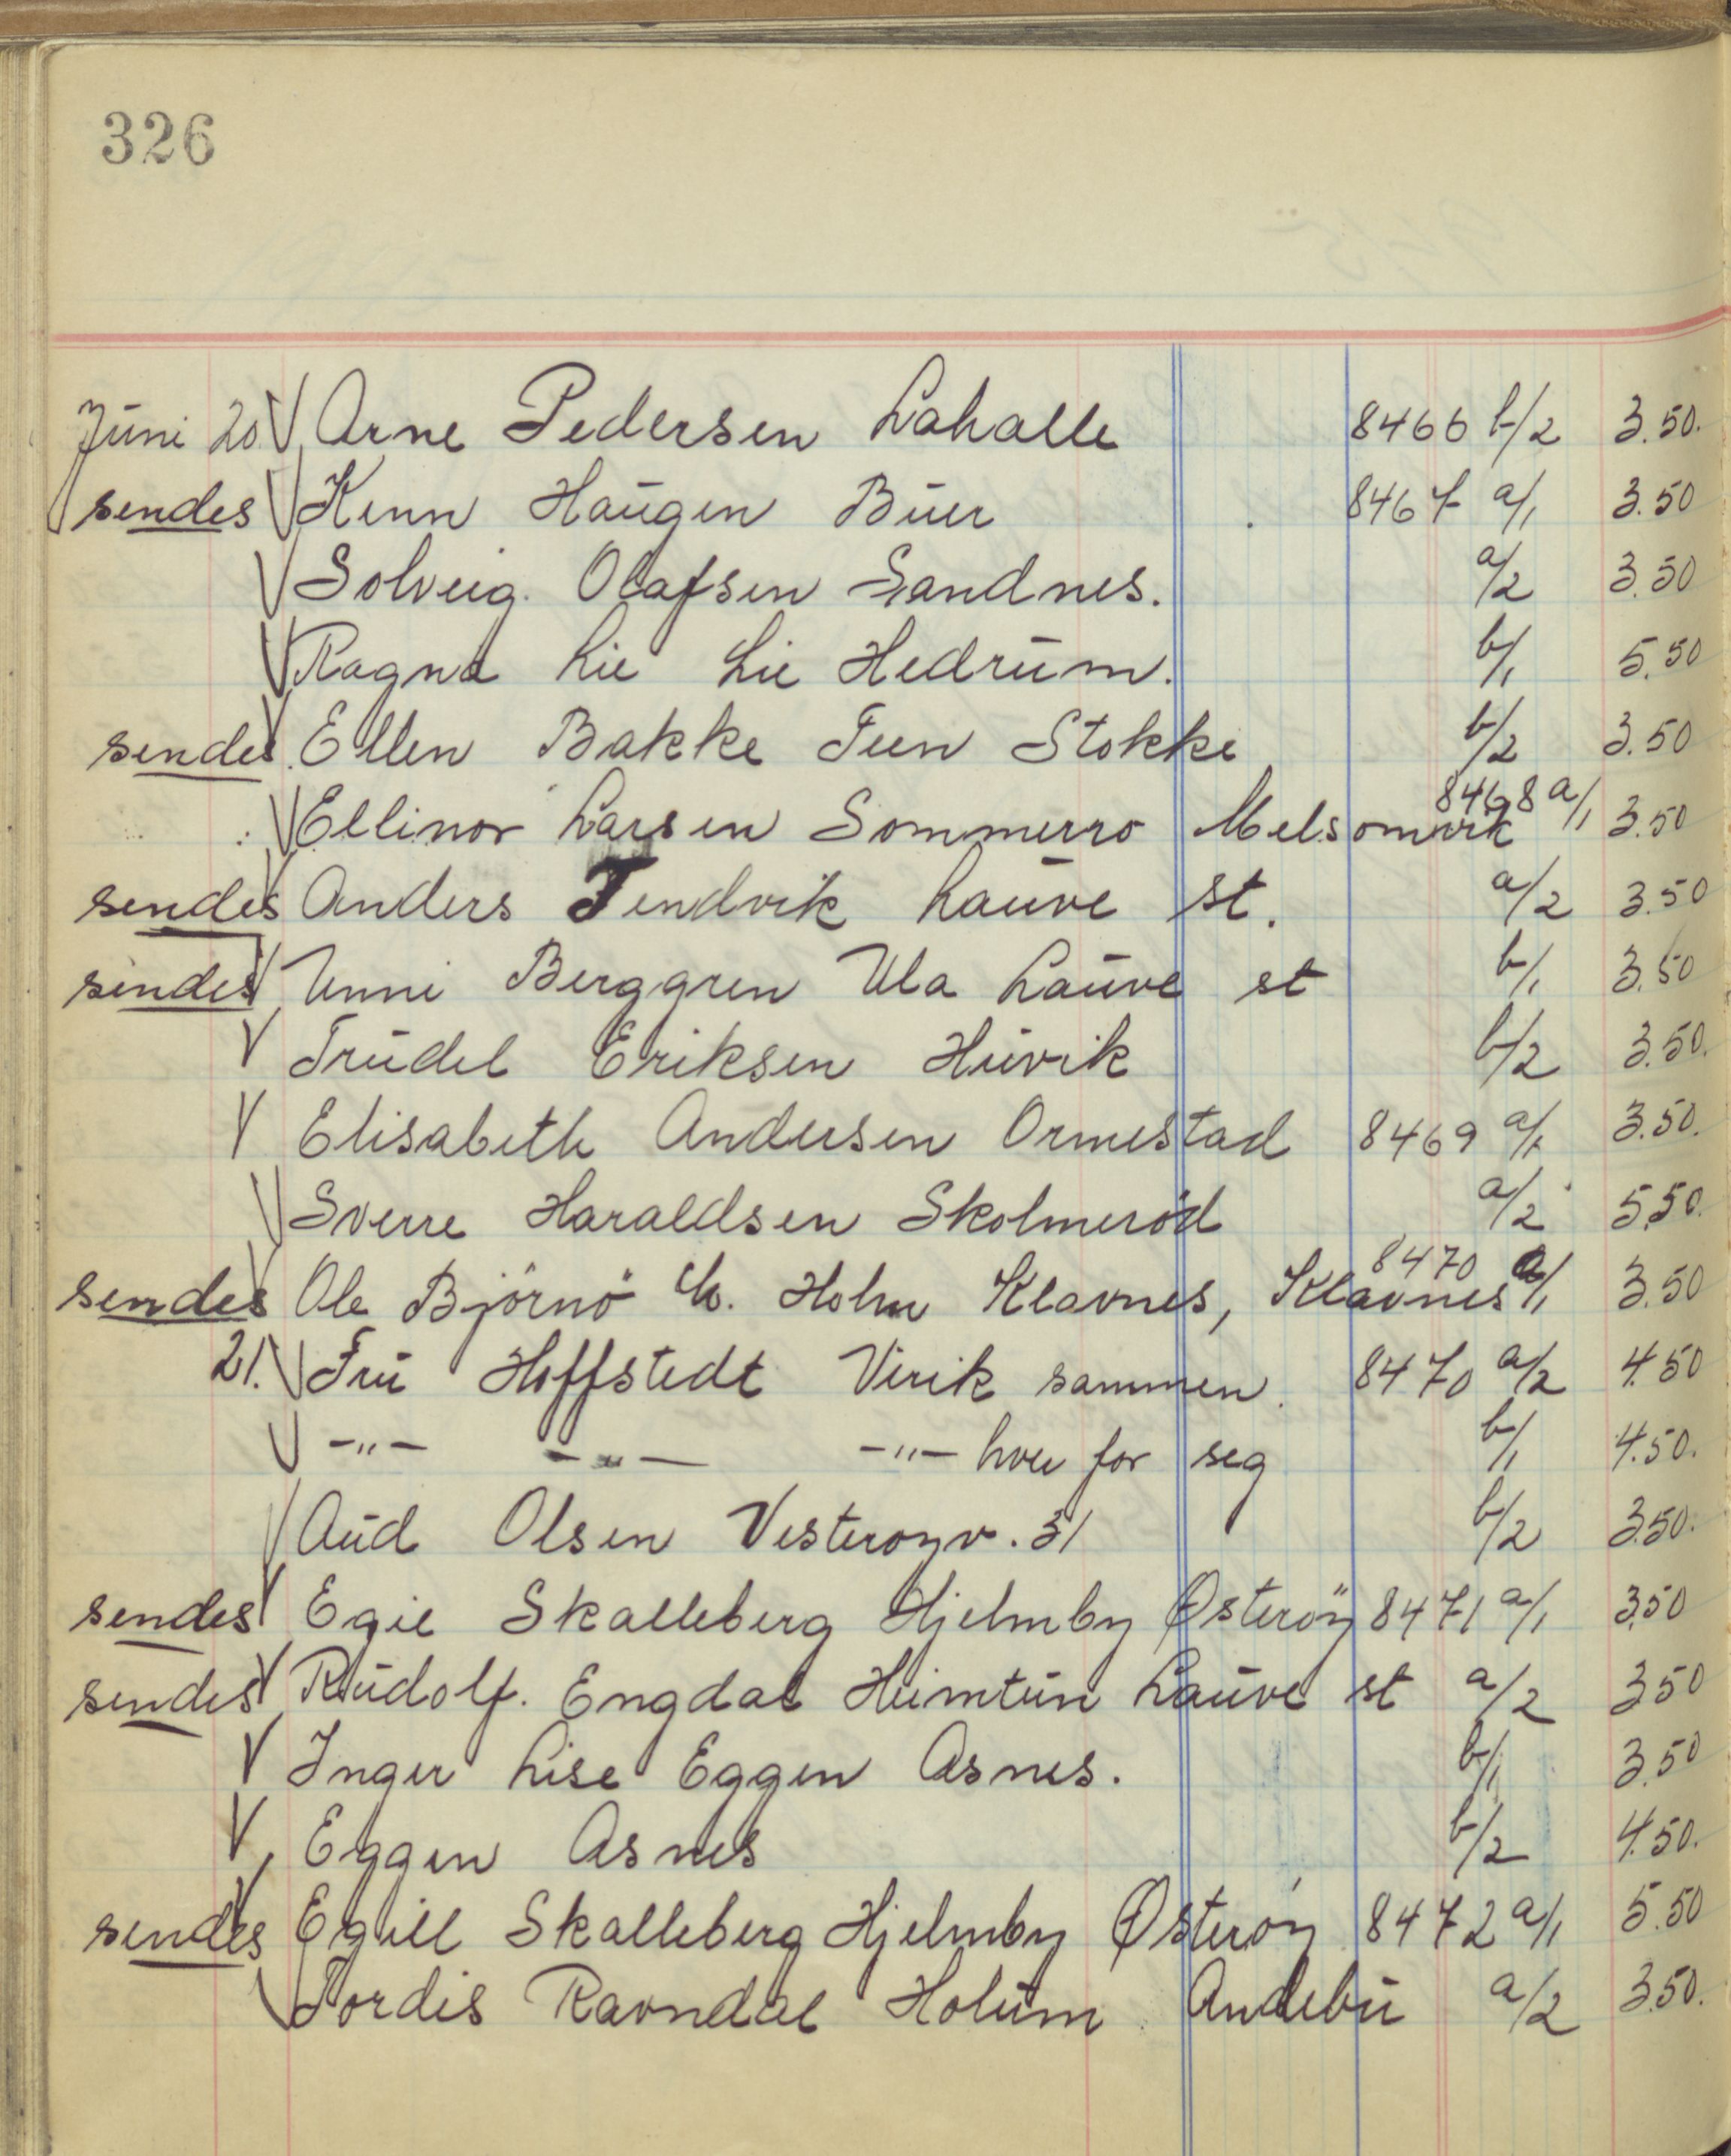 326
Juni 20. V Arne Pedersen Lahalle 8466 b/2 3.50.
sendes V Kenn Haugen Buer 8467 a/1 3.50
V Solveig Olafsen Sandnes. a/2 3.50
V Ragna Lie Lie Hedrum. b/1 5.50
sendes V Ellen Bakke Teen Stokke b/2 3.50
V Ellinor Larsen Sommerro Melsomvik 8468 a/1 3.50
sendes V Anders Tendvik Lauve st. a/2 3.50
sendes V Unni Berggren Ula Lauve st b/1 3.50
V Trudel Eriksen Huvik b/2 3.50.
V Elisabeth Andersen Ormestad 8469 a/1 3.50.
V Sverre Haraldsen Skolmeröd a/2 5.50.
sendes V Ole Björnö c/o. Holm Klavnes, Klavnes 8470 a/1 3.50
21. V Fru Hoffstedt Virik sammen. 8470 a/2 4.50
V -"- -"- -"- hver for seg b/1 4.50.
V Aud Olsen Vesterøyv. 31 b/2 3.50.
sendes V Egil Skalleberg Hjelmby Østeröy 8471 a/1 3.50
sendes V Rudolf. Engdal Heimtun Lauve st a/2 3.50
V Inger Lise Eggen Asnes. b/1 3.50
V Eggen Asnes b/2 4.50.
sendes V Egill Skalleberg Hjelmby Østerøy 8472 a/1 5.50
V Tordis Ravndal Holum Andebu a/2 3.50.